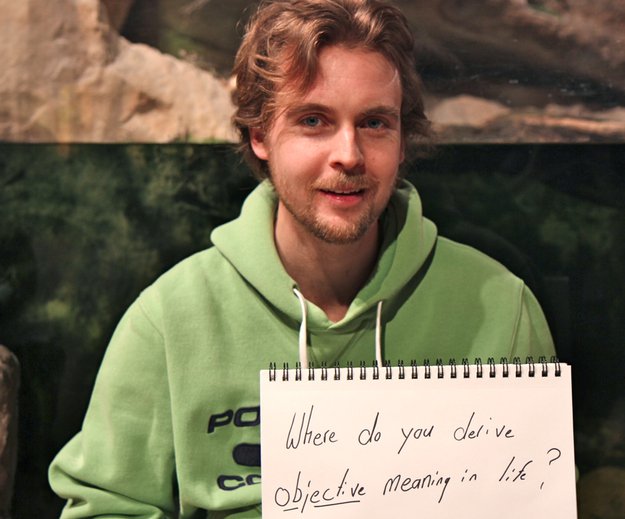 PO
CO
Where do you derive
objective meaning in life?